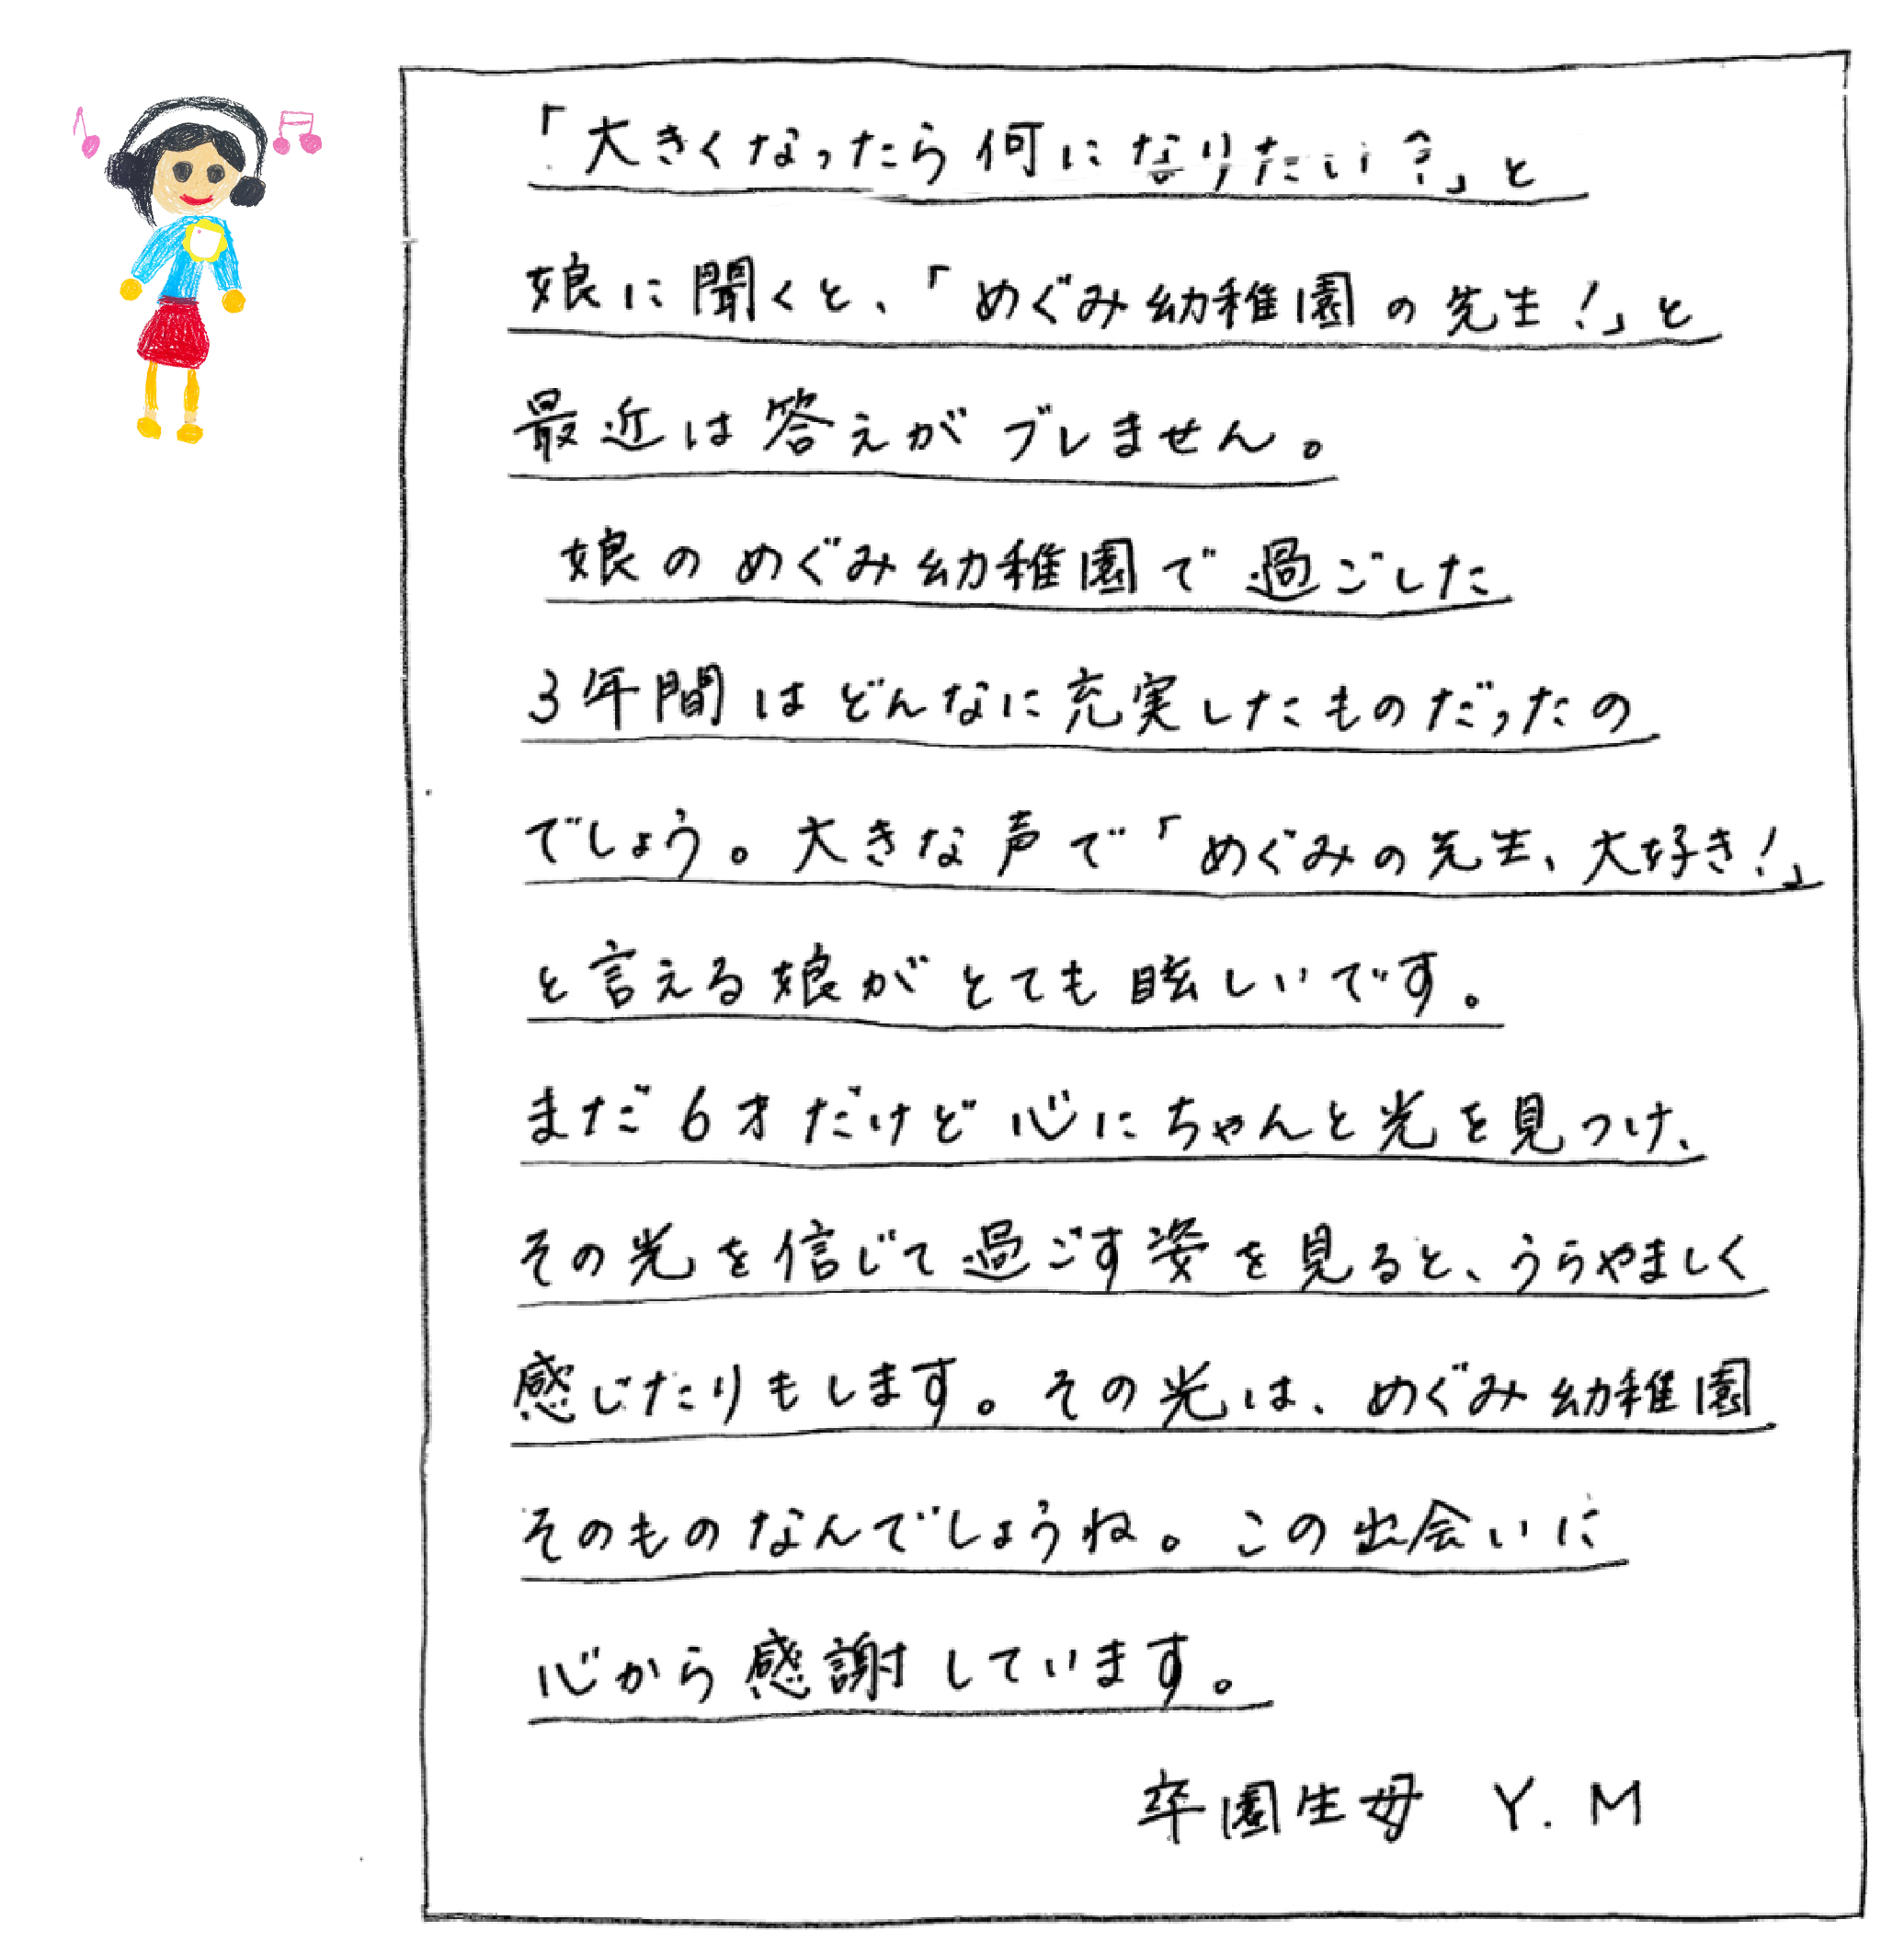 「大きくなったら何になりたい？」と
娘に聞くと、「めぐみ幼稚園の先生！」と
最近は答えがブレません。
娘のめぐみ幼稚園で過ごした
3年間はどんなに充実したものだったの
でしょう。大きな声で「めぐみの先生、大好き！」
と言える娘がとても眩しいです。
まだ6才だけど心にちゃんと光を見つけ、
その光を信じて過ごす姿を見ると、うらやましく
感じたりもします。その光は、めぐみ幼稚園
そのものなんでしょうね。この出会いに
心から感謝しています。
卒園生母 Y.M